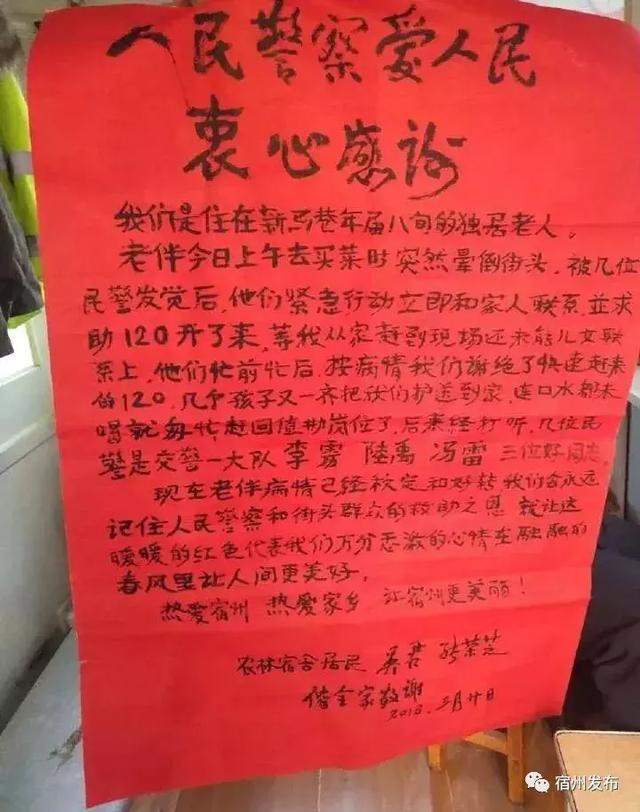 人民警察爱人民
衷心感谢
我们是住在新马巷年届八旬的独居老人。
老伴今日上午去买菜时突然晕倒街头,被几位
民警发觉后,他们紧急行动立即和家人联系,並求
助120开了来,等我从家赶到现场还未能儿女联
系上,他们忙前忙后,按病情我们谢绝了快速赶来
的120,几个孩子又一齐把我们护送到家,连口水都未
喝就匆忙赶回值勤岗位了,后来经打听,几位民
警是交警一大队李雳 陆禹 冯雷 三位好同志
现在老伴病情已经稳定和好转我们会永远
记住人民警察和街头群众的救助之恩 就让这
暖暖的红色代表我们万分感激的心情在融融的
春风里让人间更美好。
热爱宿州 热爱家乡 让宿州更美丽!
农林宿舍居民 张荣芝
偕全家敬谢
2018.三月廿日
宿州发布